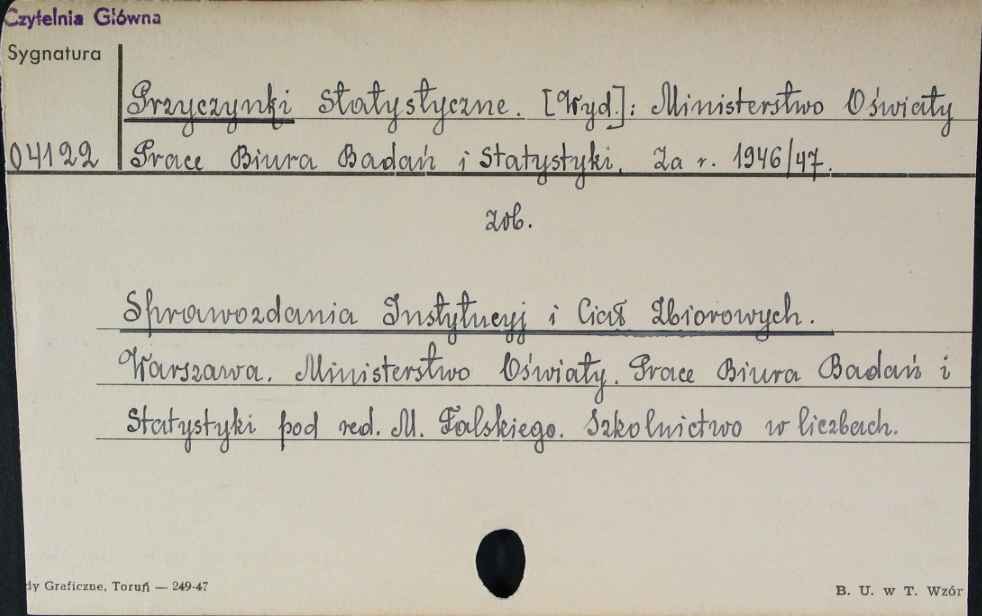 Czytelnia Główna
Sygnatura
Przyczynki Statystyczne. [Wyd.]: Ministerstwo Oświaty
04122 Prace Biura Badań i Statystyki. Za r. 1946/47.
zob.
Sprawozdania Instytucyj i Ciał Zbiorowych.
Warszawa. Ministerstwo Oświaty. Prace Biura Badań i
Statystyki pod red. M. Falskiego. Szkolnictwo w liczbach.
dy Graficzne, Toruń — 249-47
B. U. w T. Wzór